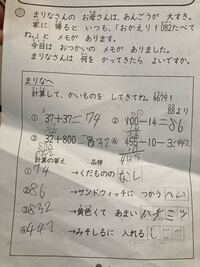 まりなさんの お母さんは、あんごうが 大すき。
家に 帰ると いつも、「おかえり！082たべて
ね。」と メモが あります。
今日は おつかいの メモが ありました。
まりなさんは 何を かってきたら よいですか。
まりなへ
計算して、かいものを してきてね。4649！
88より
① 37+37=74 ② 100-14=86
③ 32+800=832 ④ 455-10-3=442
計算の答え 品物
①74 →くだものの なし
②86 →サンドウィッチに つかう ハム
③832 →黄色くて あまい ハチミツ
④442 →みそしるに 入れる